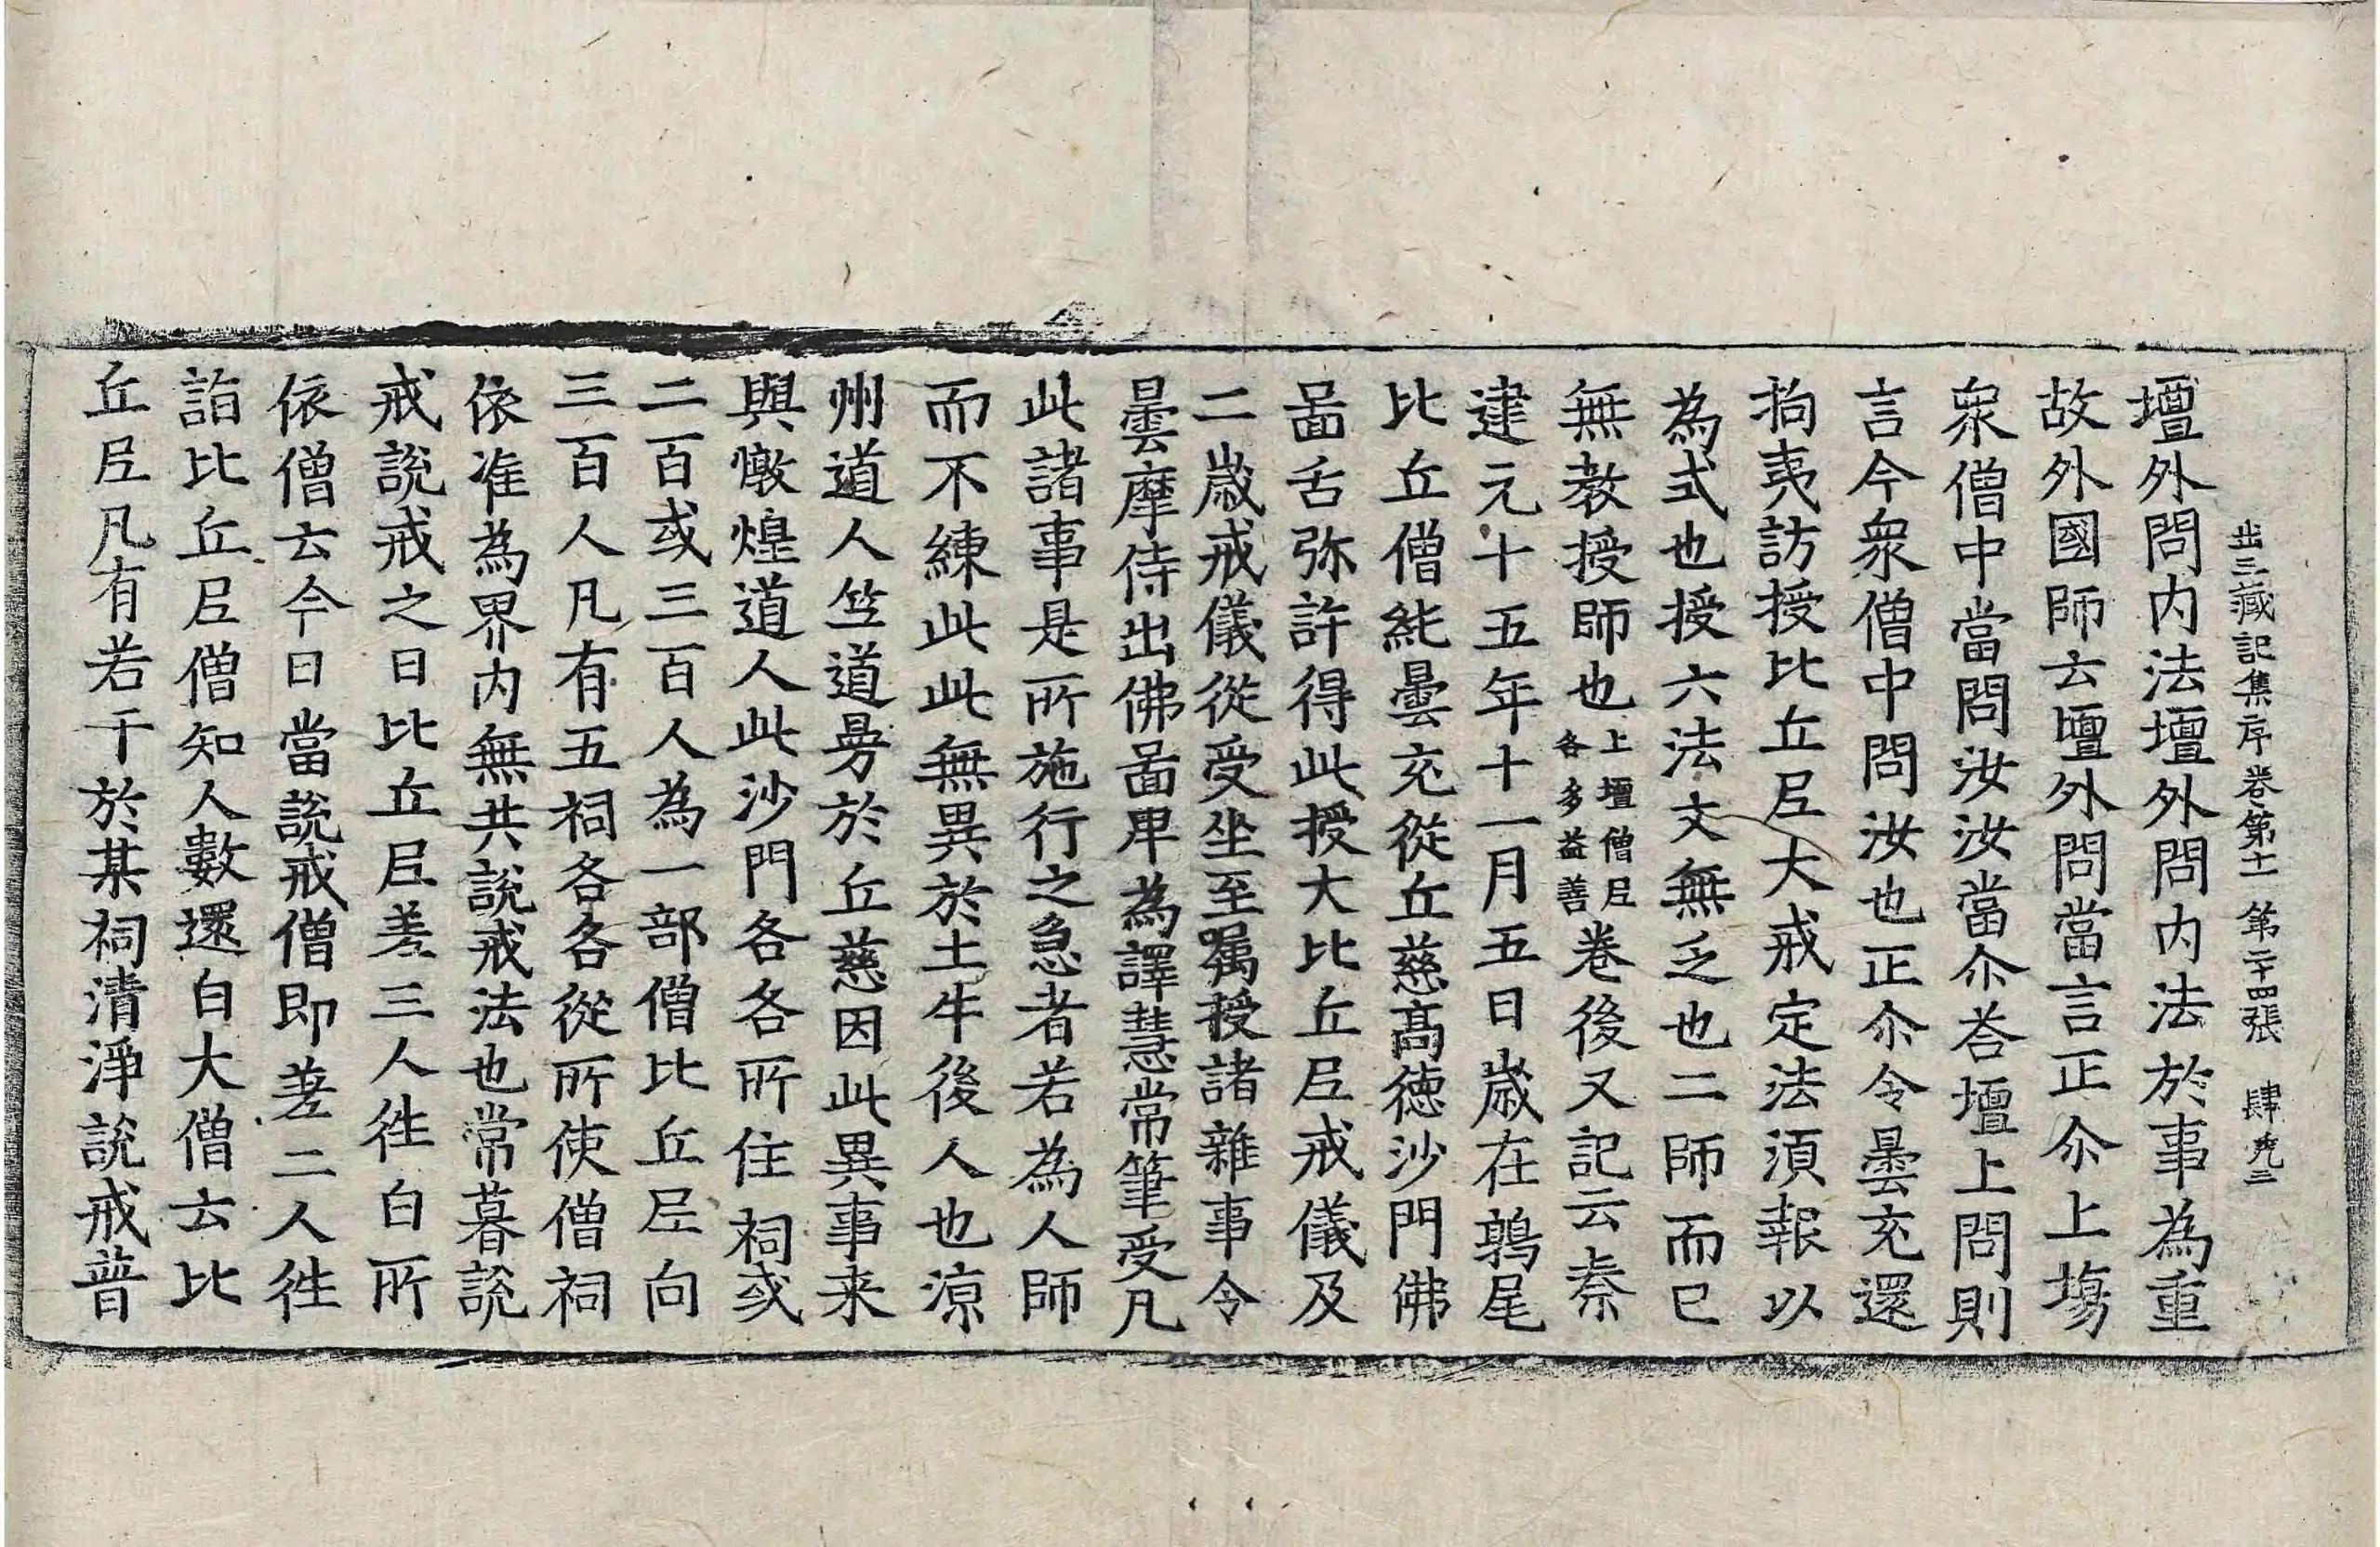 出三藏記集序卷第十一 第二十四張 肆

壇外問内法壇外問内法於事為重
故外國師云壇外問當言正尒上塲
衆僧中當問汝汝當尒荅壇上問則
言今衆僧中問汝也正尒令曇充還
拘夷訪授比丘尼大戒定法須報以
為式也授六法文無乏也二師而已
無教授師也上壇僧尼各多益善卷後又記云秦
建元十五年十一月五日歲在鶉尾
比丘僧純曇充從丘慈高德沙門佛
啚舌弥許得此授大比丘尼戒儀及
二歲戒儀從受坐至囑授諸雜事令
曇摩侍出佛啚卑為譯慧常筆受凡
此諸事是所施行之急者若為人師
而不練此此無異於土牛後人也涼
州道人竺道曼於丘慈因此異事来
與燉煌道人此沙門各各所住祠或
二百或三百人為一部僧比丘尼向
三百人凡有五祠各各從所使僧祠
依准為界内無共說戒法也常暮說
戒說戒之日比丘尼差三人往白所
依僧云今日當說戒僧即差二人往
詣比丘尼僧知人數還白大僧云比
丘尼凡有若干於某祠清淨說戒普